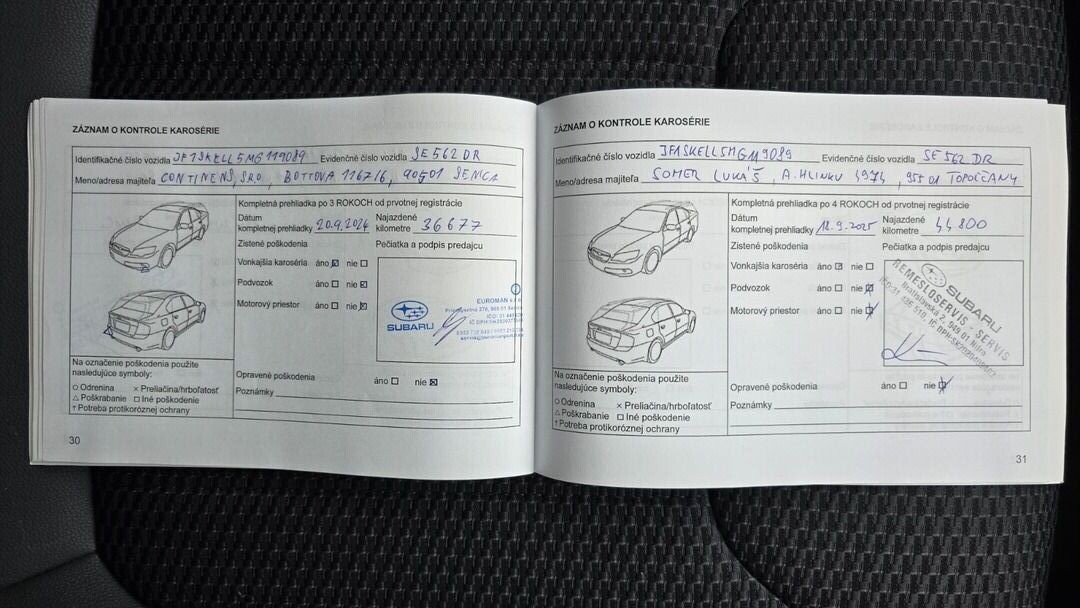 ZÁZNAM O KONTROLE KAROSÉRIE
Identifikačné číslo vozidla JF1SKELL5MG119089 Evidenčné číslo vozidla SE562DR
Meno/adresa majiteľa CONTINENS, SRO, BOTTOVA 1167/6, 90501 SENICA
Kompletná prehliadka po 3 ROKOCH od prvotnej registrácie
Dátum
kompletnej prehliadky 20.9.2024 Najazdené
kilometre 36677
Zistené poškodenia Pečiatka a podpis predajcu
Vonkajšia karoséria áno nie
Podvozok áno nie
Motorový priestor áno nie
EUROMAN
SUBARU
Opravené poškodenia áno nie
Poznámky
Na označenie poškodenia použite
nasledujúce symboly:
○ Odrenina × Preliačina/hrboľatosť
△ Poškrabanie □ Iné poškodenie
† Potreba protikoróznej ochrany
30
ZÁZNAM O KONTROLE KAROSÉRIE
Identifikačné číslo vozidla JF1SKELL5MG119089 Evidenčné číslo vozidla SE562DR
Meno/adresa majiteľa SOMER LUKÁŠ, A. HLINKU 3974, 955 01 TOPOĽČANY
Kompletná prehliadka po 4 ROKOCH od prvotnej registrácie
Dátum
kompletnej prehliadky 18.9.2025 Najazdené
kilometre 44800
Zistené poškodenia Pečiatka a podpis predajcu
Vonkajšia karoséria áno nie
Podvozok áno nie
Motorový priestor áno nie
SUBARU
REMESLOSERVIS - SERVIS
Bratislavská 2, 949 01 Nitra
Opravené poškodenia áno nie
Poznámky
Na označenie poškodenia použite
nasledujúce symboly:
○ Odrenina × Preliačina/hrboľatosť
△ Poškrabanie □ Iné poškodenie
† Potreba protikoróznej ochrany
31